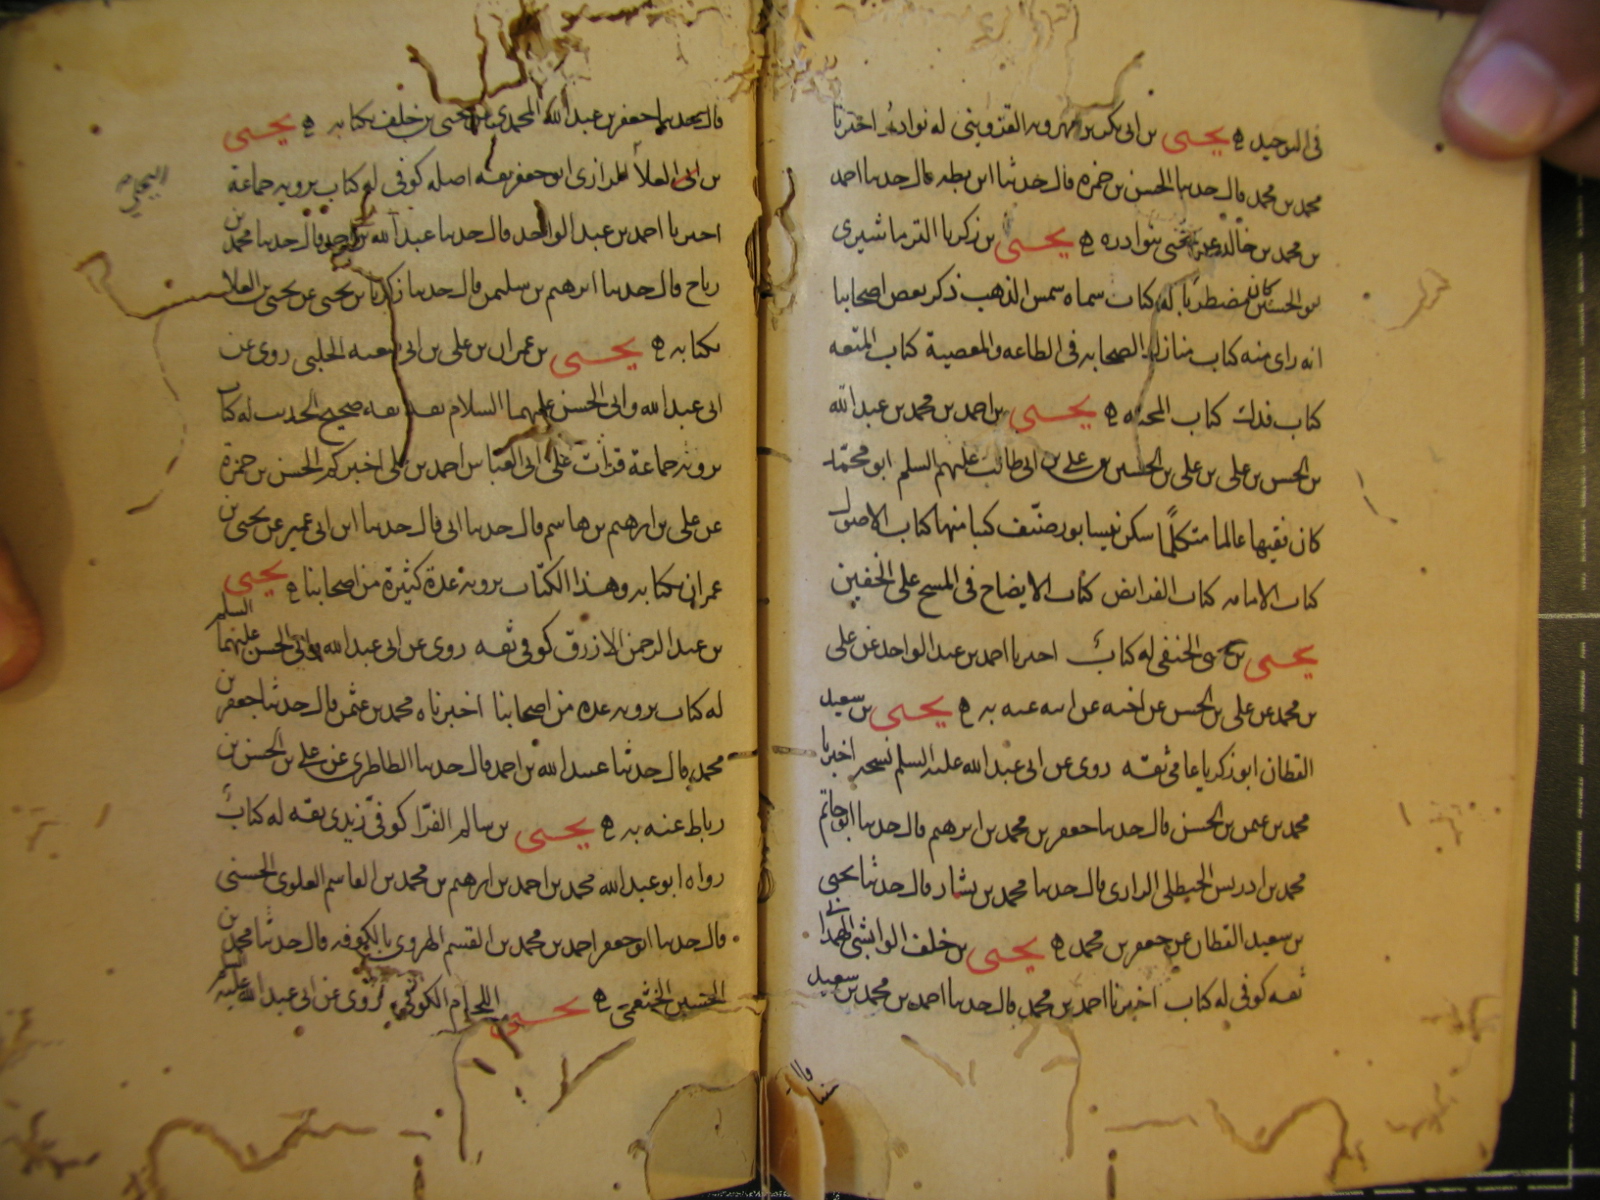 في التوحيد ه يحيى بن ابي بكر بن مهرويه القزويني له نوادر اخبرنا
محمد بن محمد قال حدثنا الحسن بن حمزه قال حدثنا ابن بطه قال حدثنا احمد
بن محمد بن خالد عن يحيى بنوادره ه يحيى بن زكريا الترماشيري
ابو الحسين كان مضطربا له كتاب سماه شمس الذهب ذكر بعض اصحابنا
انه راى منه كتاب منازل الصحابه في الطاعه والمعصية كتاب المتعه
كتاب فدك كتاب المحنه ه يحيى بن احمد بن محمد بن عبد الله
بن الحسن بن علي بن علي بن الحسين بن علي بن ابي طالب عليهم السلم ابو محمد
كان فقيها عالما متكلما سكن نيسابور صنف كتبا منها كتاب الاصول
كتاب الامامه كتاب الفرائض كتاب الايضاح في المسح على الخفين
يحيى بن الحنفي له كتاب اخبرنا احمد بن عبد الواحد عن علي
بن محمد عن علي بن الحسن عن اخيه عن ابيه عنه به ه يحيى بن سعيد
القطان ابو زكريا عامي ثقه روى عن ابي عبد الله عليه السلم نسخه اخبرنا
محمد بن عثمن بن الحسن قال حدثنا جعفر بن محمد بن ابرهيم قال حدثنا ابو حاتم
محمد بن ادريس الحنظلي الرازي قال حدثنا محمد بن بشار قال حدثنا يحيى
بن سعيد القطان عن جعفر بن محمد ه يحيى بن خلف الوابشي الهمداني
ثقه كوفي له كتاب اخبرنا احمد بن محمد قال حدثنا احمد بن محمد بن سعيد
قال حدثنا جعفر بن عبد الله المحمدي عن يحيى بن خلف بكتابه ه يحيى
بن ابي العلا الرازي ابو جعفر ثقه اصله كوفي له كتاب يرويه جماعة
البجلي
اخبرنا احمد بن عبد الواحد قال حدثنا عبد الله بن احمد قال حدثنا محمد بن
رباح قال حدثنا ابرهيم بن سليمن قال حدثنا زكريا بن يحيى عن يحيى بن العلا
بكتابه ه يحيى بن عمران بن علي بن ابي شعبه الحلبي روى عن
ابي عبد الله وابي الحسن عليهما السلام ثقه ثقه صحيح الحديث له كتاب
يرويه جماعة قرات على ابي العباس احمد بن علي اخبركم الحسن بن حمزة
عن علي بن ابرهيم بن هاشم قال حدثنا ابي قال حدثنا ابن ابي عمير عن يحيى بن
عمران بكتابه وهذا الكتاب يرويه عدة كثيرة من اصحابنا ه يحيى
بن عبد الرحمن الازرق كوفي ثقه روى عن ابي عبد الله وابي الحسن عليهما السلم
له كتاب يرويه عده من اصحابنا اخبرناه محمد بن عثمن قال حدثنا جعفر بن
محمد قال حدثنا عبيد الله بن احمد قال حدثنا الطاطري عن علي بن الحسن بن
رباط عنه به ه يحيى بن سالم الفرا كوفي زيدي ثقه له كتاب
رواه ابو عبد الله محمد بن احمد بن ابرهيم بن محمد بن القاسم العلوي الحسني
قال حدثنا ابو جعفر احمد بن محمد بن القسم الهروي بالكوفه قال حدثنا محمد بن
الحسين الخثعمي ه يحيى اللحام الكوفي روى عن ابي عبد الله عليه السلم